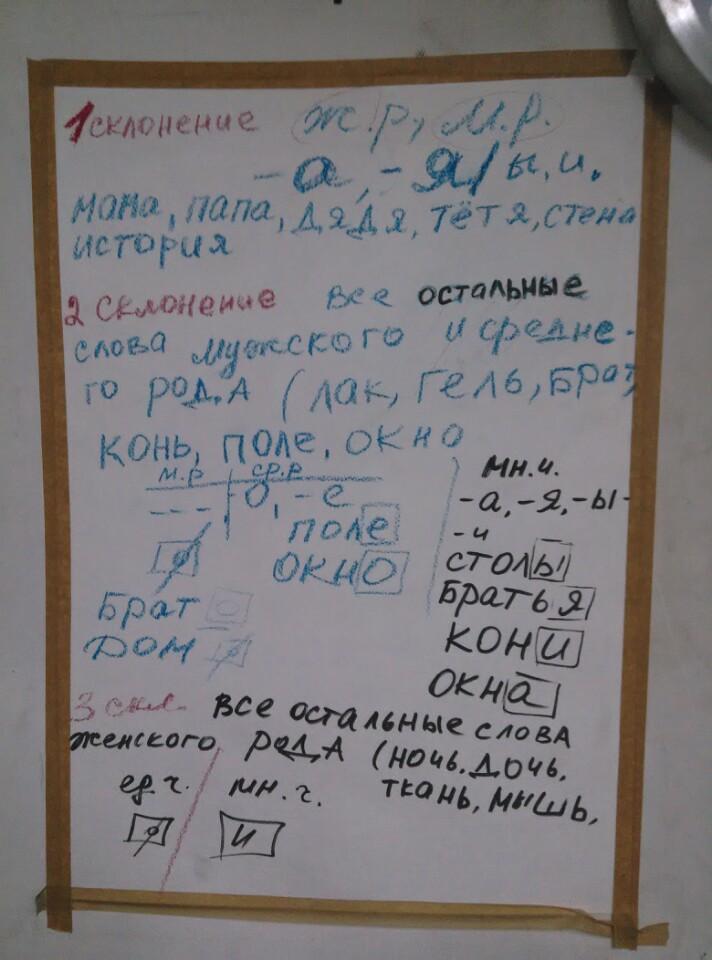 1 склонение ж.р, м.р.
-а, -я/ ы, и.
мама, папа, дядя, тётя, стена
история
2 склонение все остальные
слова мужского и средне-
го рода (лак, гель, брат,
конь, поле, окно
м.р ср.р
---, -о, -е
поле
∅ окно
брат
дом ∅
мн.ч.
-а, -я, -ы-
-и
столы
братья
кони
окна
3 скл. все остальные слова
женского рода (ночь, дочь,
ткань, мышь,
ед.ч. мн.ч.
∅ и